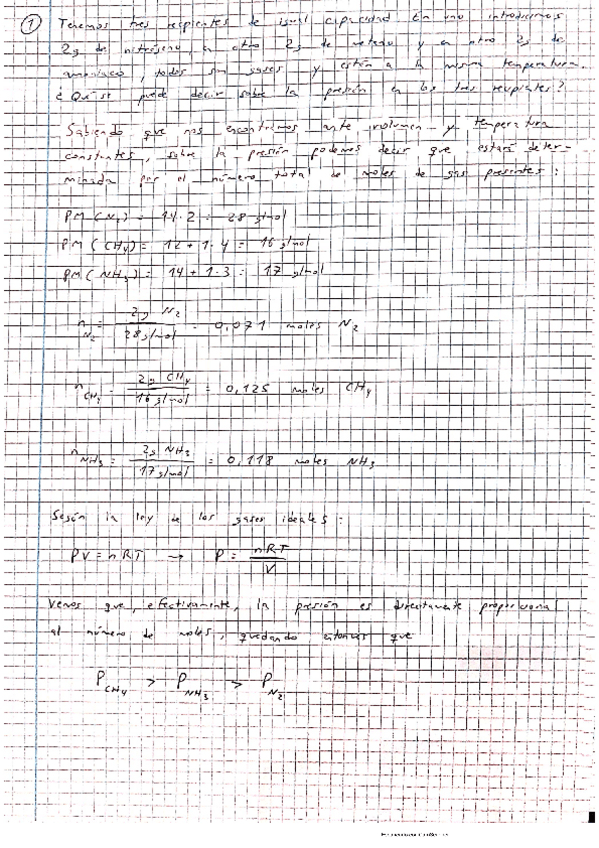 ① Tenemos tres recipientes de igual capacidad. En uno introducimos
2g de nitrógeno, en otro 2g de metano y en otro 2g de
amoniaco, todos son gases y están a la misma temperatura.
¿Qué se puede decir sobre la presión en los tres recipientes?
Sabiendo que nos encontramos ante volumen y temperatura
constantes, sobre la presión podemos decir que estará deter-
minada por el número total de moles de gas presentes:
PM (N₂) = 14·2 = 28 g/mol
PM (CH₄) = 12 + 1·4 = 16 g/mol
PM (NH₃) = 14 + 1·3 = 17 g/mol
n N₂ = 2g N₂ / 28 g/mol = 0,071 moles N₂
n CH₄ = 2g CH₄ / 16 g/mol = 0,125 moles CH₄
n NH₃ = 2g NH₃ / 17 g/mol = 0,118 moles NH₃
Según la ley de los gases ideales:
PV = nRT → P = nRT / V
Vemos que, efectivamente, la presión es directamente proporcional
al número de moles, quedando entonces que
P CH₄ > P NH₃ > P N₂